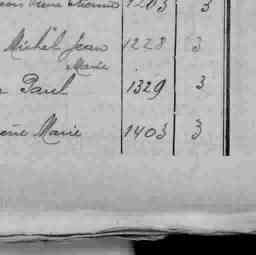 1203 3
Michel Jean 1228 3
Marie
Paul 1329 3
Marie 1403 3